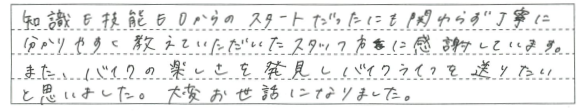 知識も技能も0からのスタートだったにも関わらず丁寧に
分かりやすく教えていただいたスタッフ方々に感謝しています。
また、バイクの楽しさを発見しバイクライフを送りたい
と思いました。大変お世話になりました。